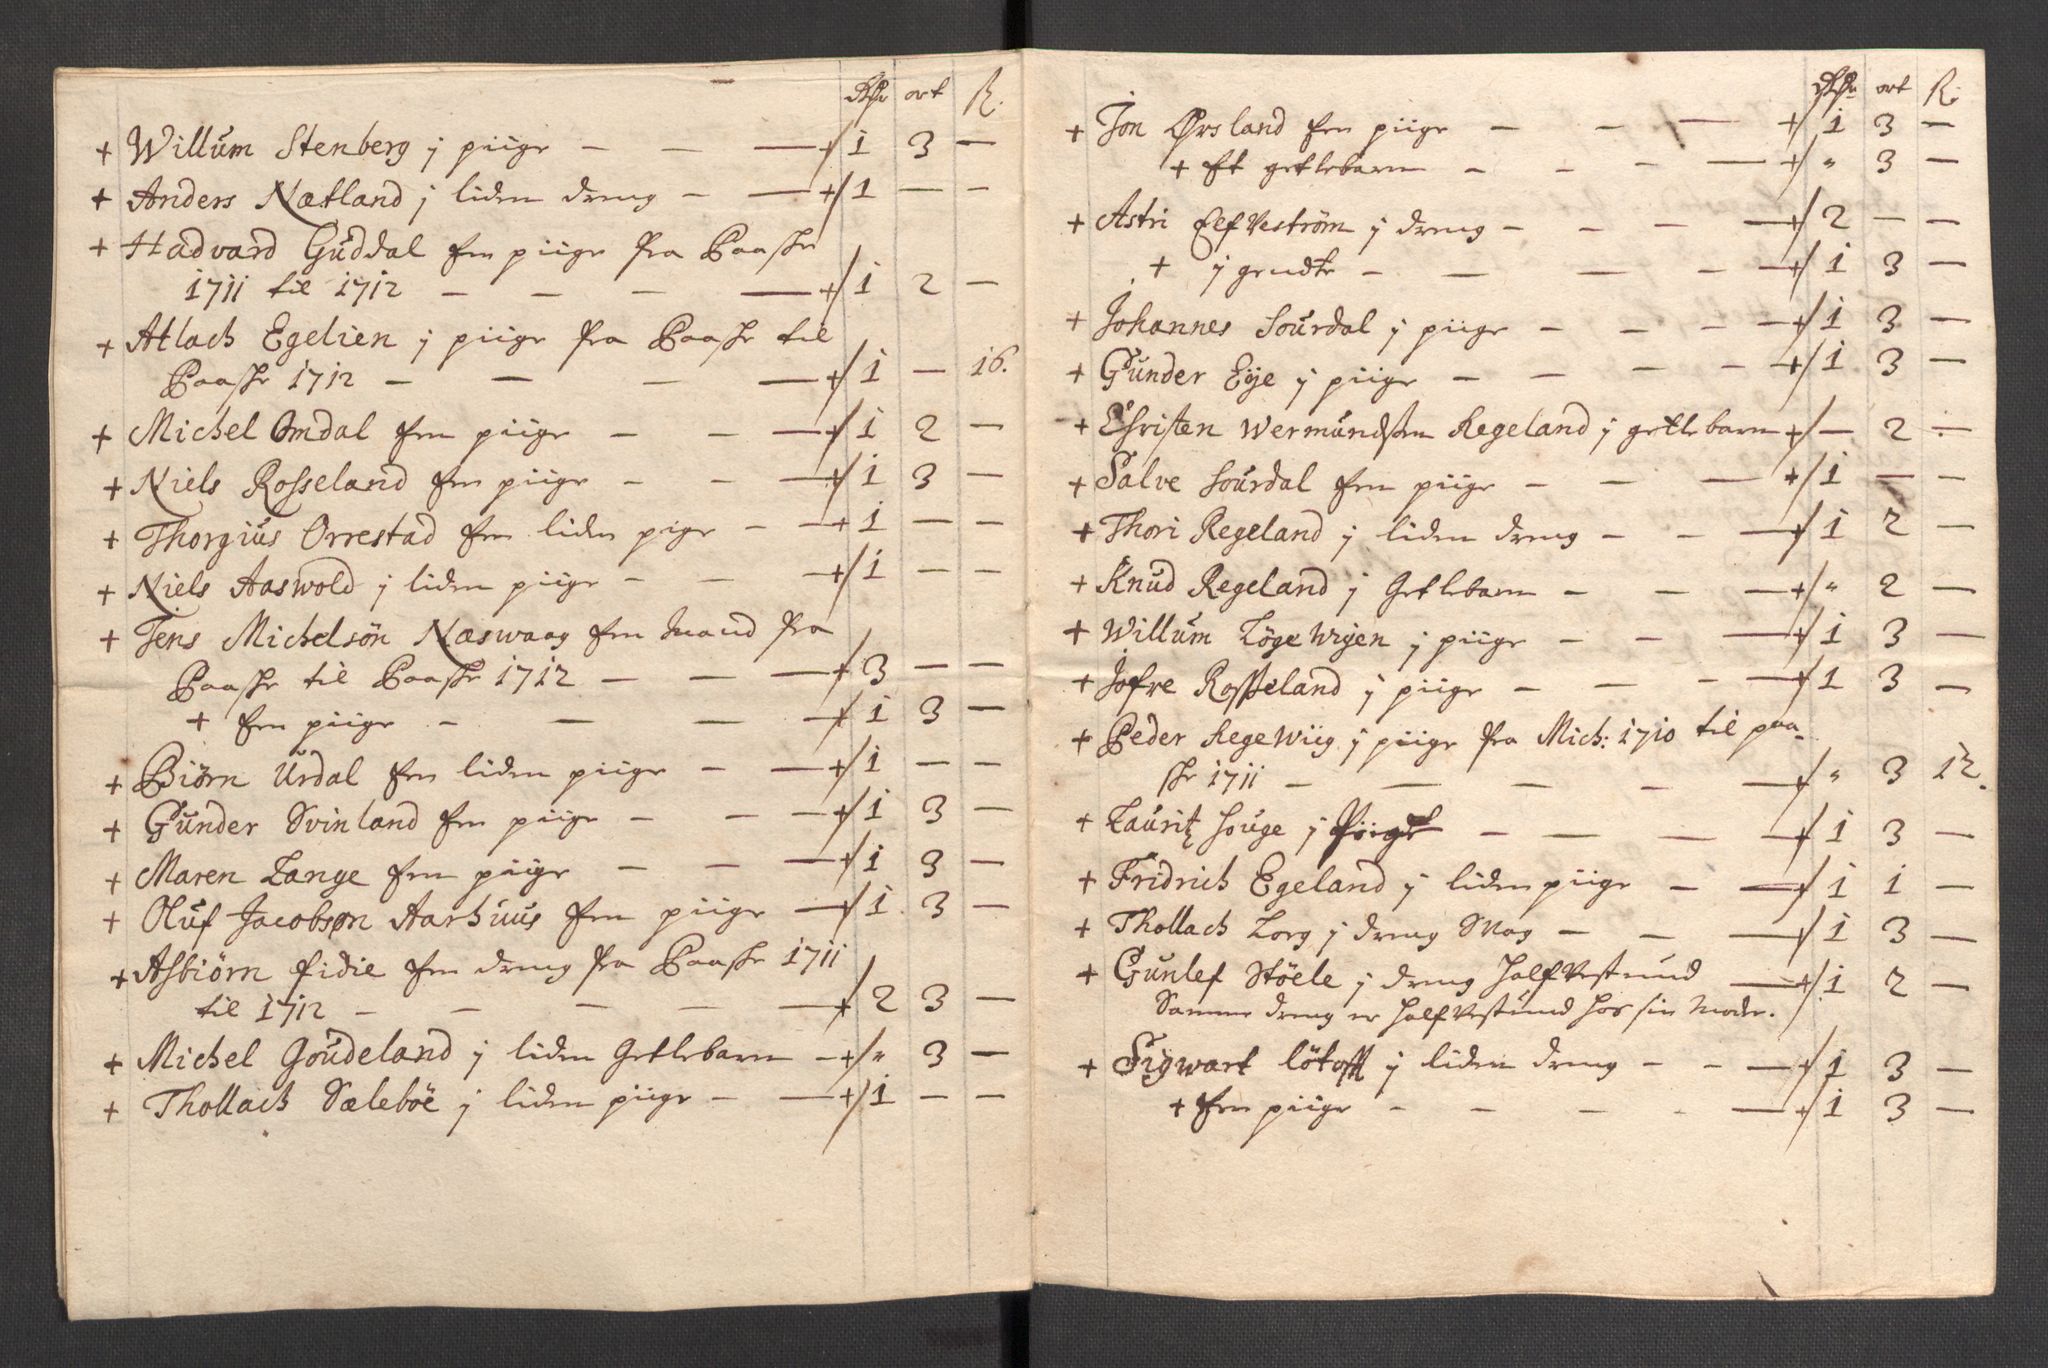 Rdr ort ß.
+ Willum Stenberg j piige — — — + 1 3 —
+ Anders Nætland j liden dreng — — + 1 — —
+ Hadvard Guddal Een piige fra Paaske
1711 til 1712 — — — — + 1 2 —
+ Atlach Egelien j piige fra Paaske til
Paaske 1712 — — — — + 1 — 16.
+ Michel Omdal Een piige — — — + 1 2 —
+ Niels Rosseland Een piige — — — + 1 3 —
+ Thorgius Orrestad Een liden pige — — + 1 — —
+ Niels Aaswold j liden piige — — — + 1 — —
+ Jens Michelsön Næswaag Een Mand fra
Paaske til Paaske 1712 — — — + 3 — —
+ Een piige — — — — + 1 3 —
+ Biörn Urdal Een liden piige — — + 1 — —
+ Gunder Svinland Een piige — — — + 1 3 —
+ Maren Lange Een piige — — — + 1 3 —
+ Oluf Jacobsøn Aarhuus Een piige — + 1 3 —
+ Asbiörn Eidie Een dreng fra Paaske 1711
til 1712 — — — — — + 2 3 —
+ Michel Goudeland j liden Getlebarn — + " 3 —
+ Thollach Sæleböe j liden piige — — + 1 — —
Rdr ort ß.
+ Jon Ørsland Een piige — — — + 1 3 —
+ Et getlebarn — — — — + " 3 —
+ Astri Elfveström j dreng — — — — + 2 — —
+ j gendte — — — — — + 1 3 —
+ Johannes Sourdal j piige — — — — + 1 3 —
+ Gunder Eije j piige — — — — — + 1 3 —
+ Christen Wermundsen Regeland j getlebarn + — 2 —
+ Salve Sourdal Een piige — — — + 1 — —
+ Thori Regeland j liden dreng — — — + 1 2 —
+ Knud Regeland j Getlebarn — — — + " 2 —
+ Willum Lögewigen j piige — — — + 1 3 —
+ Jofre Rosseland j piige — — — — + 1 3 —
+ Peder Regewiig j piige fra Mich: 1710 til paa-
ske 1711 — — — — — + " 3 12.
+ Lauritz Souge j Piige — — — + 1 3 —
+ Fridrich Egeland j liden piige — — + 1 1 —
+ Thollach Lorg j dreng Svag — — — + 1 3 —
+ Gunlef Stöele j dreng Half Vestund — + 1 2 —
Samme dreng er half Vestund hos sin Moder.
+ Sigwart j liden dreng — — — + 1 3 —
+ Een piige — — — — — + 1 3 —